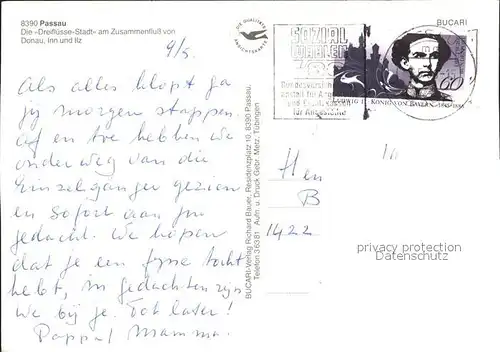 8390 Passau
Die «Dreiflüsse-Stadt» am Zusammenfluß von
Donau, Inn und Ilz
9/5.
Als alles klopt ga
jij morgen stappen.
Af en toe hebben we
onderweg van die
Einzelgänger gezien
en Sofort aan jou
gedacht. We hopen
dat je een fijne tocht
hebt, in gedachten zijn
we bij je. Tot later!
Pappa/Mamma.
DIE QUALITÄTS
ANSICHTSKARTE
BUCARI-Verlag Richard Bauer, Residenzplatz 10, 8390 Passau,
Telefon 36381 Aufn. u. Druck Gebr. Metz, Tübingen
BUCARI
SOZIAL
WAHLEN
'86
Bundesversicherungs
anstalt für Angestellte
für Angestellte
60
LUDWIG II. KÖNIG VON BAYERN 1845-1886
Hen
B
1422
privacy protection
Datenschutz